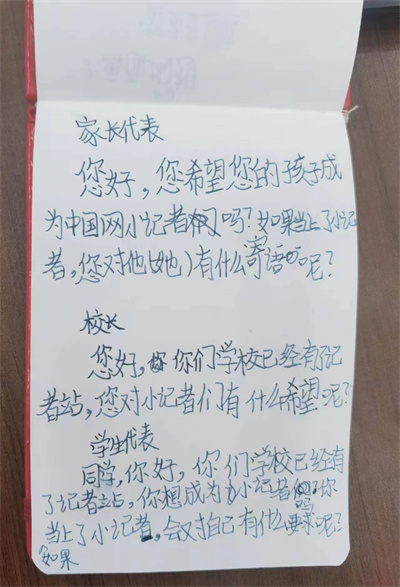 家长代表
您好，您希望您的孩子成
为中国网小记者吗？如果当上了小记
者，您对他(她)有什么寄语呢？
校长
您好，你们学校已经有了记
者站，您对小记者们有什么希望呢？
学生代表
同学，你好，你们学校已经有
了记者站，你想成为小记者吗？你
当上了小记者，会对自己有什么要求呢？
如果